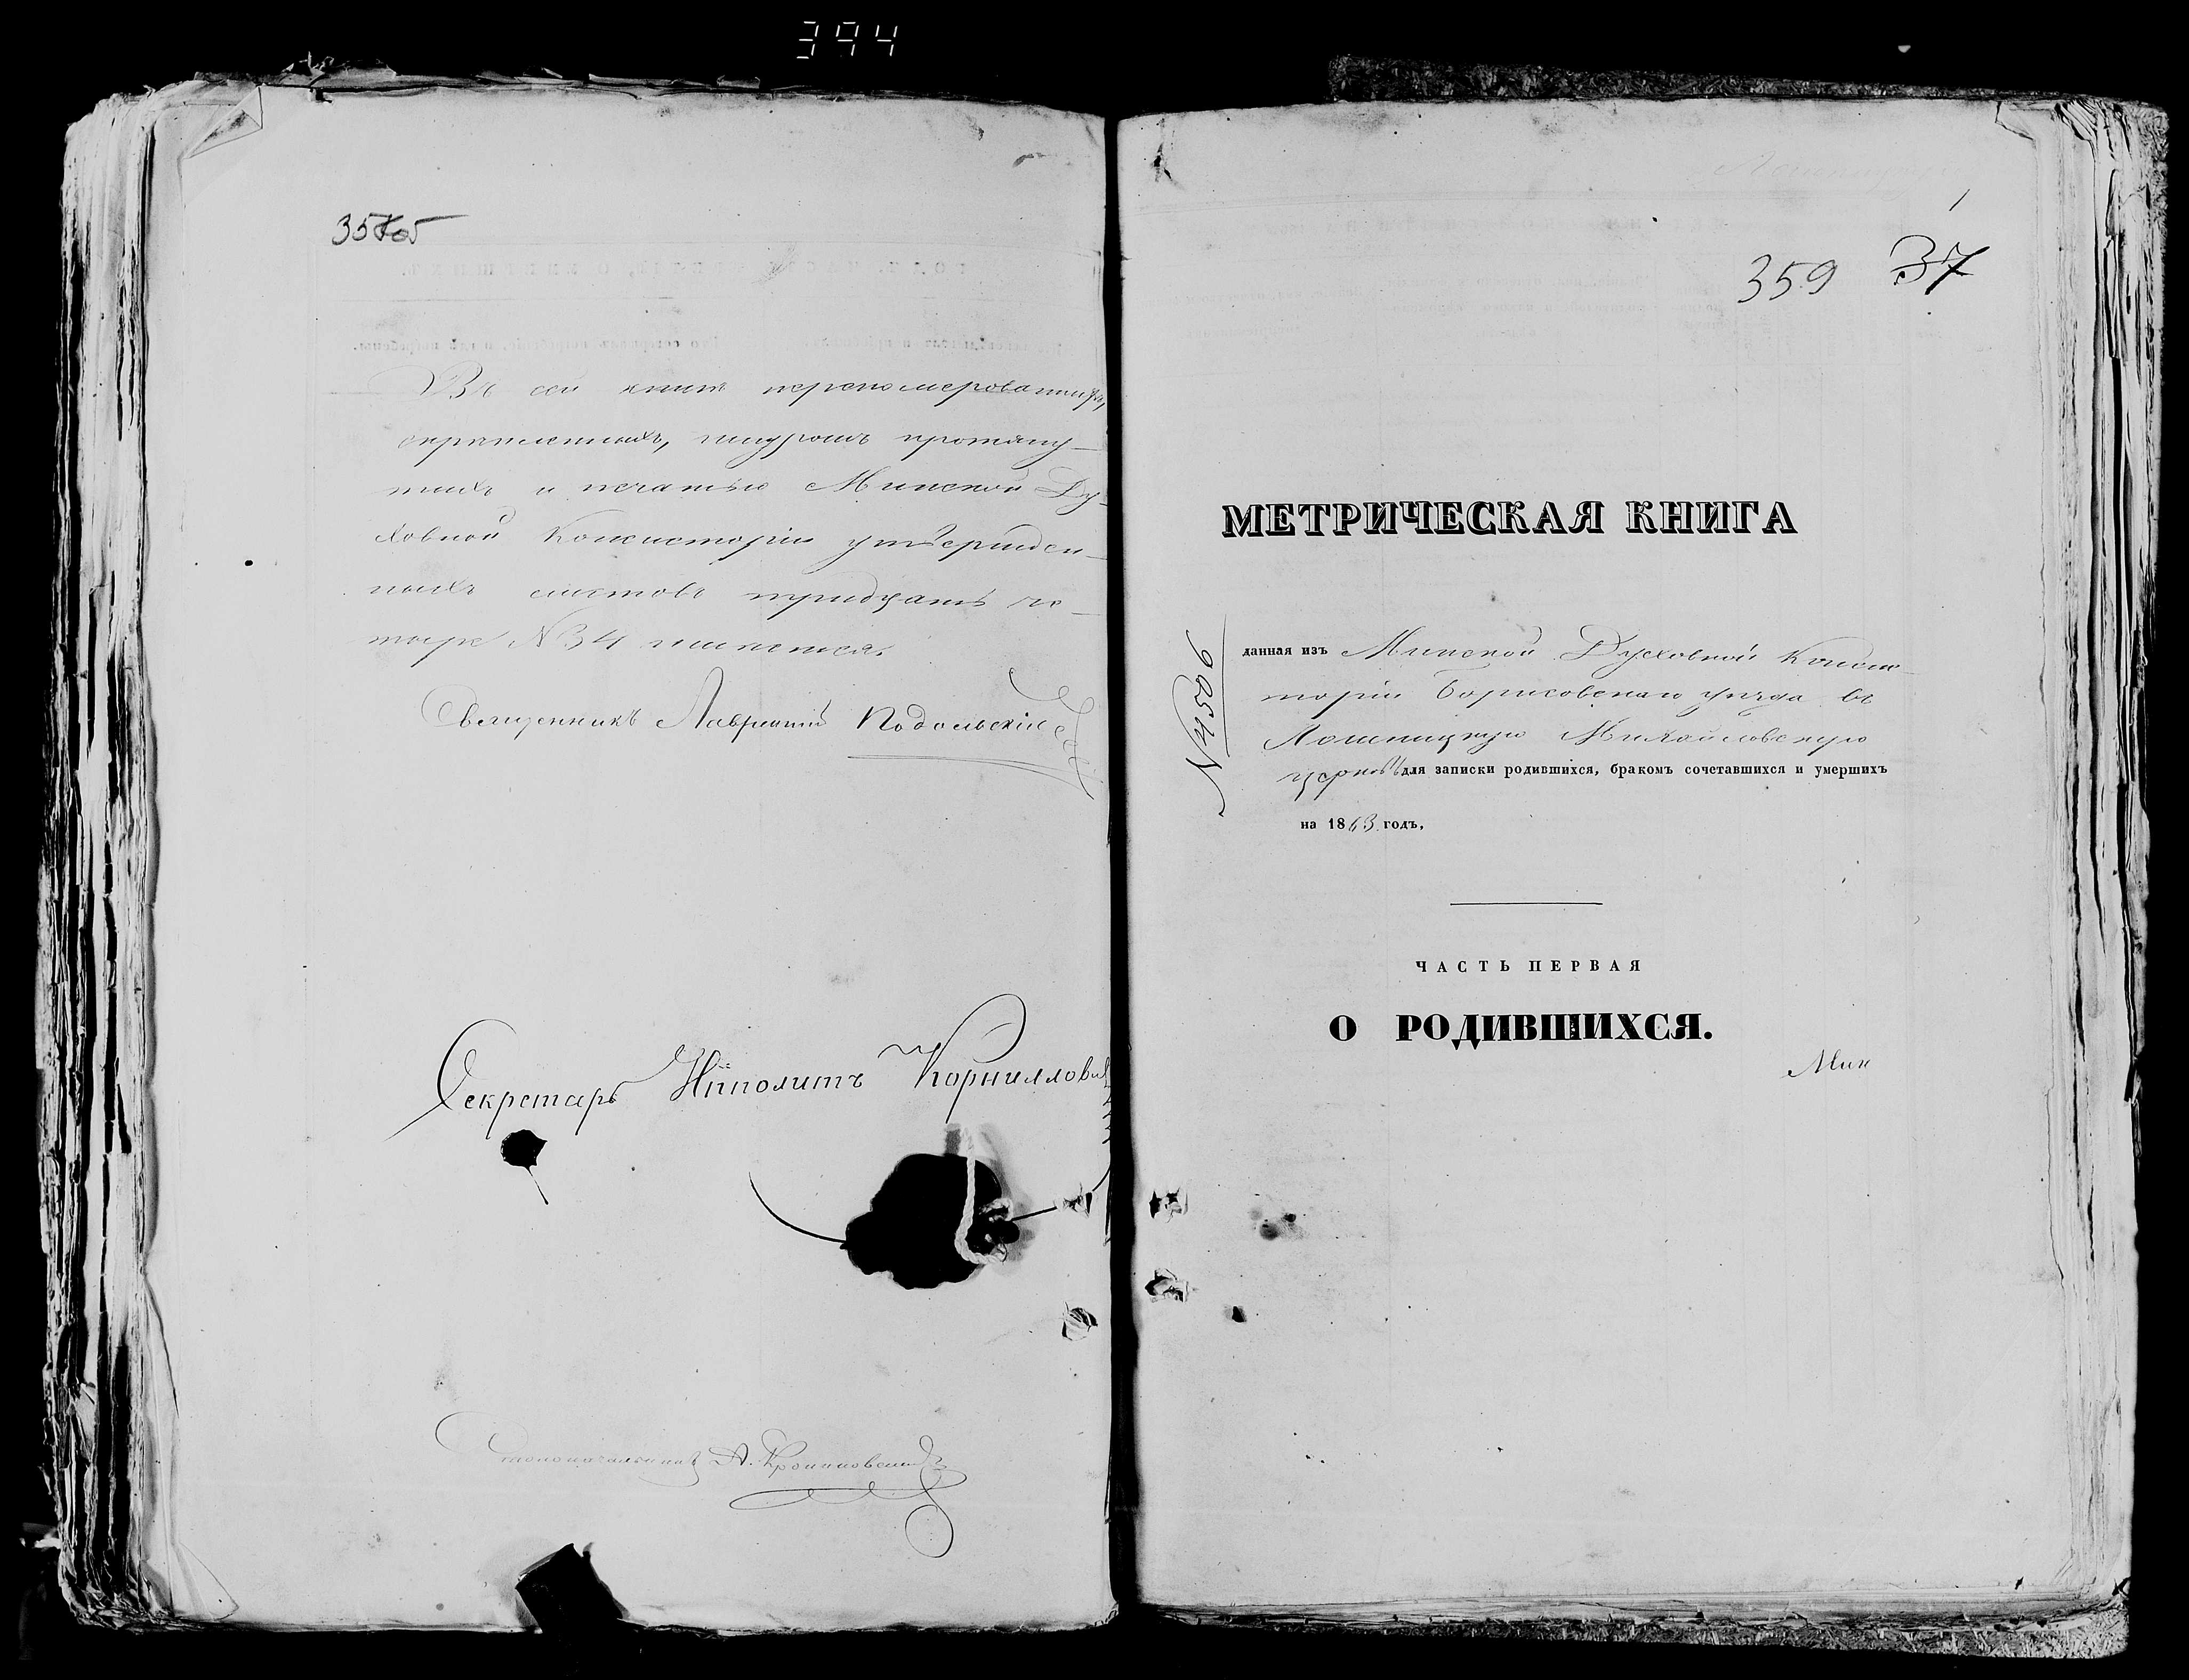 394
Въ сей книгѣ перенумерованныхъ,
скрѣпленныхъ, шнуромъ протяну-
тыхъ и печатью Минской Ду-
ховной Консисторіи утвержден-
ныхъ листовъ тридцать че-
тыре № 34 имѣется.
Священникъ Лаврентій Подольскій
Секретарь Ипполитъ Корниллович
Столоначальникъ А.
359 37
МЕТРИЧЕСКАЯ КНИГА
№ 4506
данная изъ Минской Духовной Конси-
торіи Борисовскаго уѣзда въ
Лошницкую Михайловскую
церковь для записки родившихся, бракомъ сочетавшихся и умершихъ
на 1863 годъ.
ЧАСТЬ ПЕРВАЯ
О РОДИВШИХСЯ.
Мин